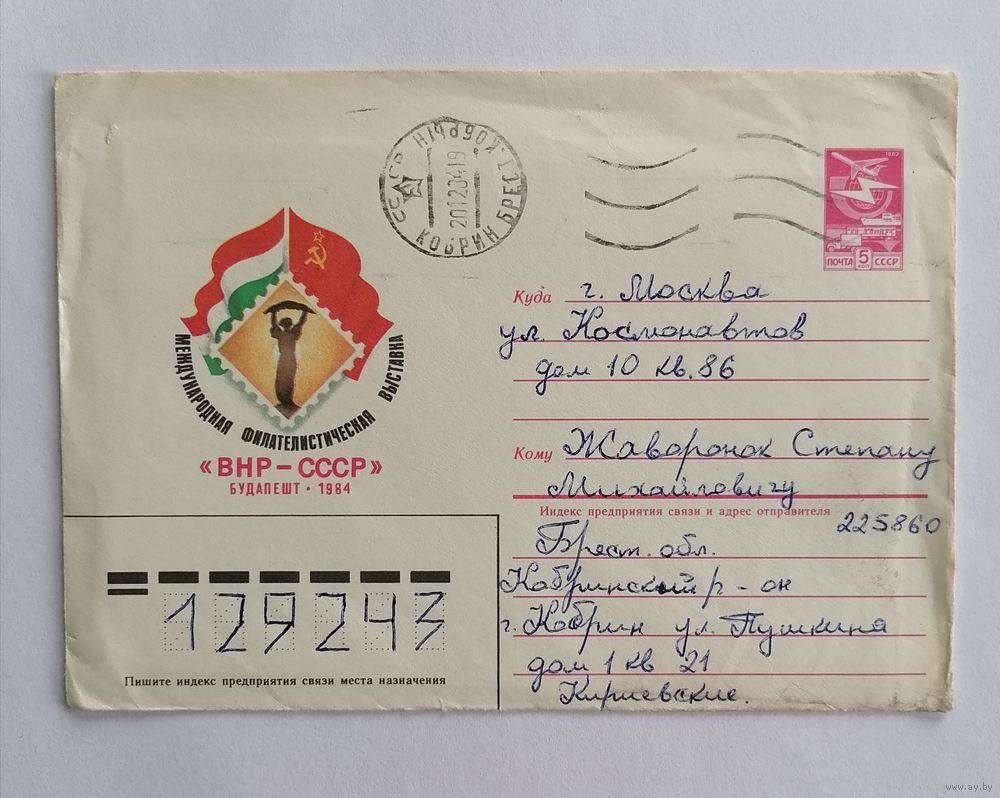 КОБРЫН
БРЕСТ.
КОБРИН
20128419
1982
ПОЧТА 5 КОП СССР
МЕЖДУНАРОДНАЯ ФИЛАТЕЛИСТИЧЕСКАЯ ВЫСТАВКА
«ВНР – СССР»
БУДАПЕШТ • 1984
Куда г. Москва
ул. Космонавтов
дом 10 кв. 86
Кому Жаворонок Степану
Михайловичу
Индекс предприятия связи и адрес отправителя
225860
Брест. обл.
Кобринский р-он
г. Кобрин ул. Пушкина
дом 1 кв 21
Киршевские.
129243
Пишите индекс предприятия связи места назначения
www.ay.by